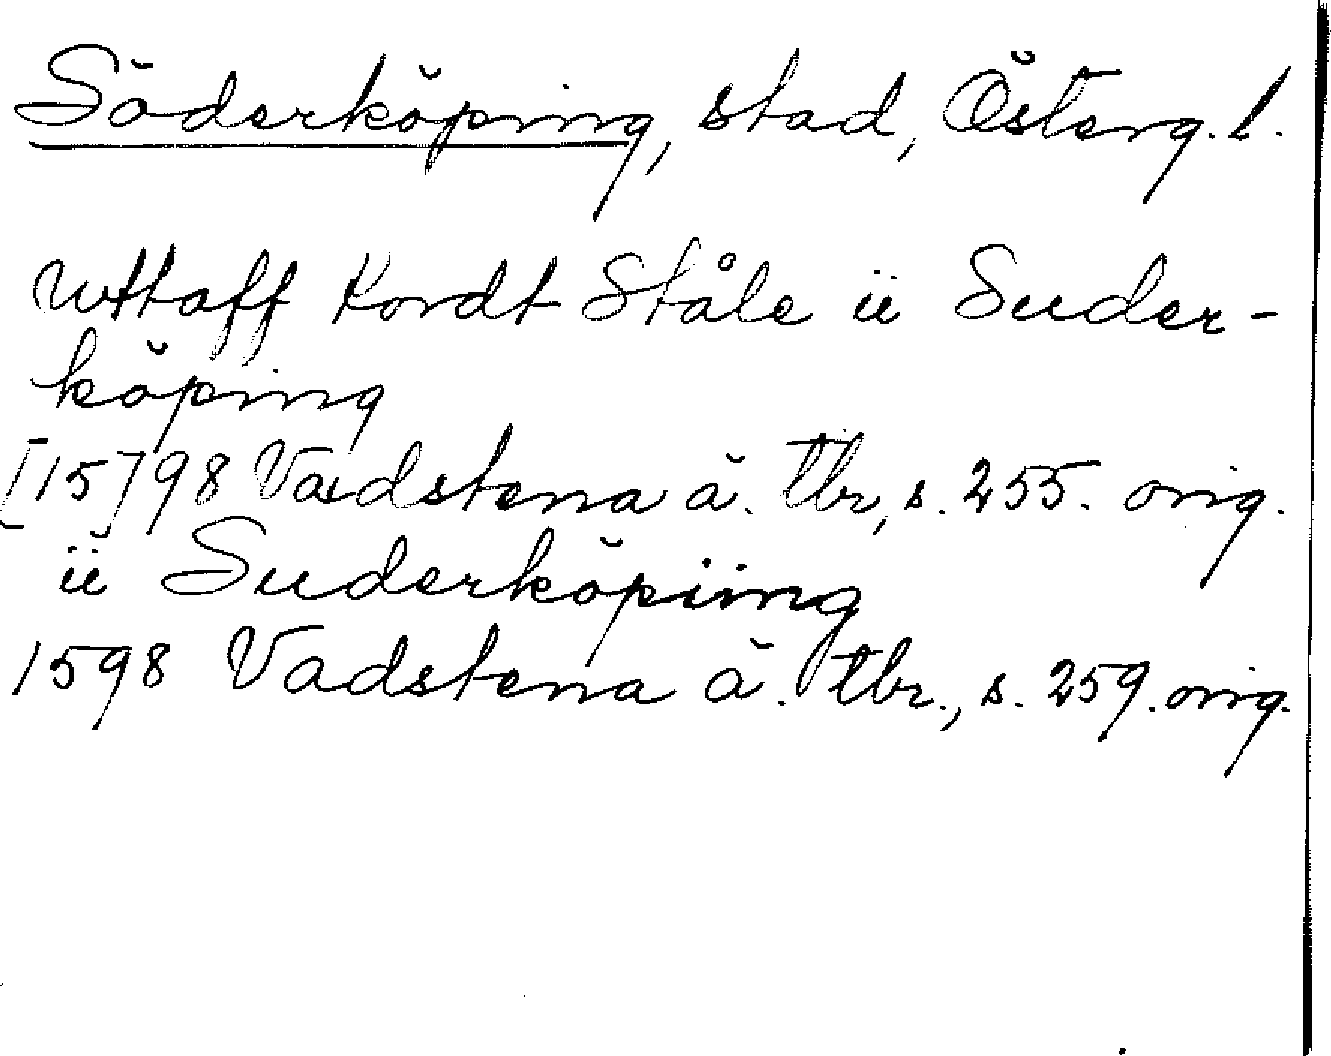 Söderköping, stad, Österg. l.
Wttaff Kordt Ståle ii Suder-
köping
[15]98 Vadstena ä. tbr, s. 255. orig.
ii Suderköpiing
1598 Vadstena ä. tbr., s. 259. orig.